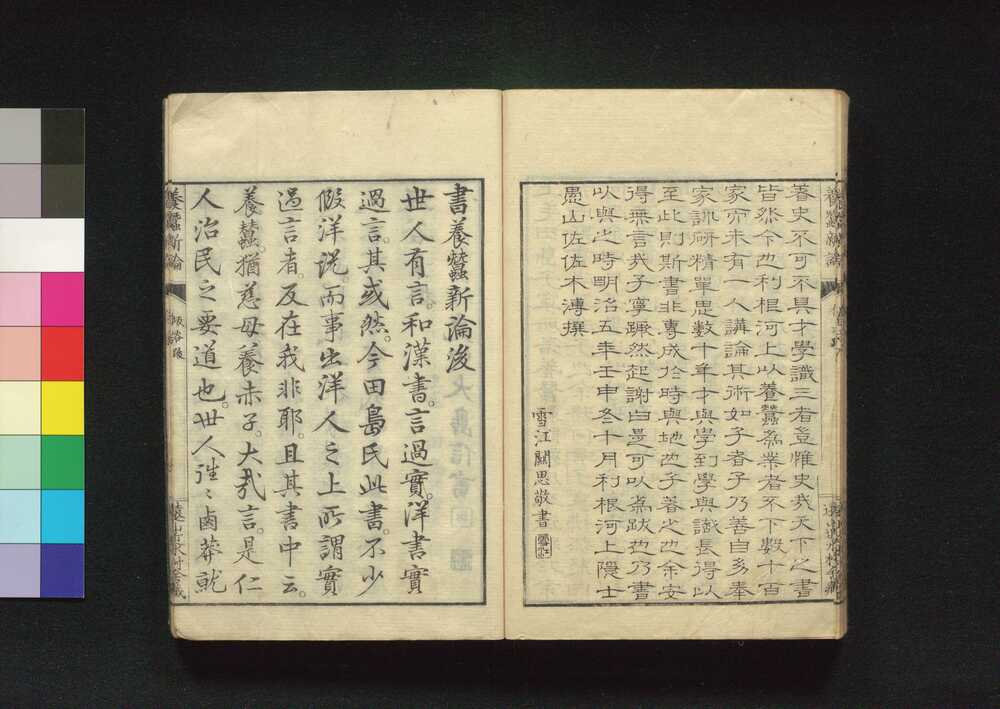 著史不可不具才學識三者豈惟史哉天下之書
皆然今也利根河上以養蠶爲業者不下數十百
家亦未有一人講論其術如子者子乃善自多奉
家訓研精單思數十年才與學到學與識長得以
至此則斯書非專成於時與地也子著之也余安
得無言哉子寧蹶然起謝曰是可以爲跋也乃書
以與之時明治五年壬申冬十月利根河上隱士
愚山佐佐木溥撰
雪江關思敬書
書養蠶新論後
世人有言。和漢書。言過實。洋書實
過言。其或然。今田島氏此書。不少
假洋説。而事出洋人之上。所謂實
過言者。反在我非耶。且其書中云。
養蠶。猶慈母養赤子。大哉言。是仁
人治民之要道也。世人徃〻鹵莽就
養蠶新論